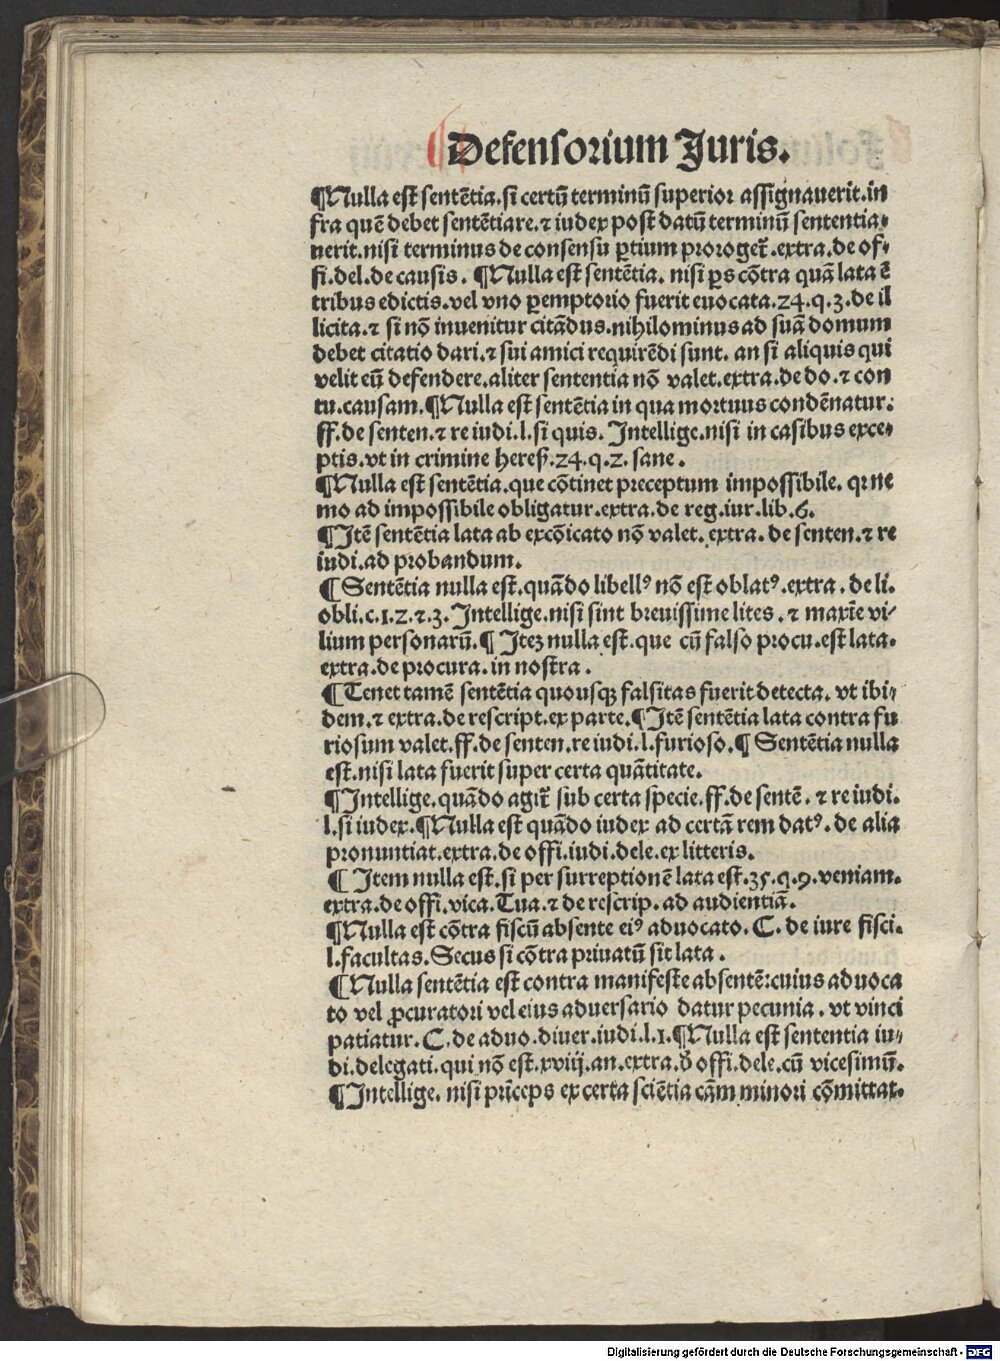 Defensorium Juris.
¶Nulla est sentētia.si certū terminū superior assignauerit.in
fra quē debet sentētiare.⁊ iudex post datū terminū sententia⸗
uerit.nisi terminus de consensu ꝑtium proroget᷑.extra.de of⸗
fi.del.de causis. ¶Nulla est sentētia. nisi ꝑs cōtra quā lata ē
tribus edictis.vel vno ꝑemptorio fuerit euocata.24.q.3.de il
licita.⁊ si nō inuenitur citādus.nihilominus ad suā domum
debet citatio dari.⁊ sui amici requirēdi sunt. an si aliquis qui
velit eū defendere.aliter sententia nō valet.extra.de do.⁊ con
tu.causam.¶Nulla est sentētia in qua mortuus condēnatur.
ff.de senten.⁊ re iudi.l.si quis. Intellige.nisi in casibus exce⸗
ptis.vt in crimine heresꝭ.24.q.2. sane.
¶Nulla est sentētia.que cōtinet preceptum impossibile. qꝛ ne
mo ad impossibile obligatur.extra.de reg.iur.lib.6.
¶Itē sentētia lata ab excōicato nō valet. extra. de senten.⁊ re
iudi.ad probandum.
¶Sentētia nulla est.quādo libellꝰ nō est oblatꝰ.extra. de li.
obli.c.1.2.⁊.3.Intellige.nisi sint breuissime lites. ⁊ maxīe vi⸗
lium personarū.¶ Iteꝫ nulla est.que cū falso procu.est lata.
extra.de procura.in nostra.
¶Tenet tamē sentētia quousqꝫ falsitas fuerit detecta. vt ibi⸗
dem.⁊ extra.de rescript.ex parte.¶Itē sentētia lata contra fu
riosum valet.ff.de senten.re iudi.l.furioso.¶ Sentētia nulla
est.nisi lata fuerit super certa quātitate.
¶Intellige.quādo agit᷑ sub certa specie.ff.de sentē. ⁊ re iudi.
l.si iudex.¶Nulla est quādo iudex ad certā rem datꝰ.de alia
pronuntiat.extra.de offi.iudi.dele.ex litteris.
¶ Item nulla est.si per surreptionē lata est.35.q.9.veniam.
extra.de offi.vica.Tua.⁊ de rescrip.ad audientiā.
¶Nulla est cōtra fiscū absente eiꝰ aduocato.C. de iure fisci.
l.facultas.Secus si cōtra priuatū sit lata.
¶Nulla sentētia est contra manifeste absentē:cuius aduoca
to vel ꝓcuratori vel eius aduersario datur pecunia. vt vinci
patiatur.C.de aduo.diuer.iudi.l.1.¶Nulla est sententia iu⸗
di.delegati.qui nō est.xviij.an.extra.ð offi.dele.cū vicesimū.
¶Intellige. nisi prīceps ex certa sciētia cām minori cōmittat.
Digitalisierung gefördert durch die Deutsche Forschungsgemeinschaft - DFG